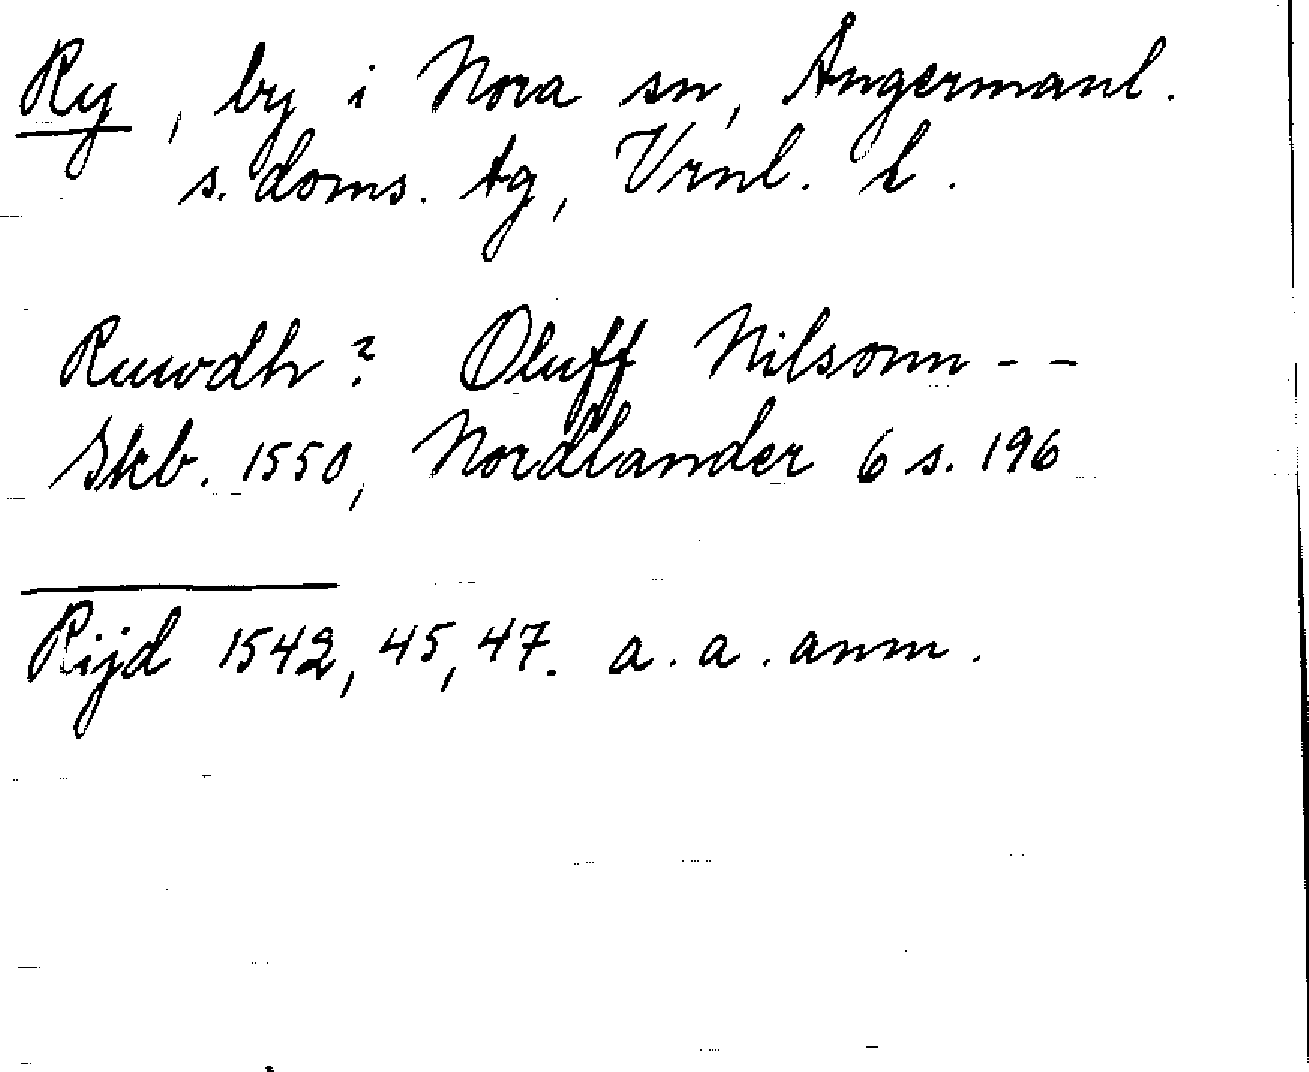 Ry, by i Nora sn, Ångermanl.
s. doms. tg, Vrnl. l.
Ruwdh? Oluff Nilsonn - -
Skb. 1550, Nordlander 6 s. 196
Rijd 1542, 45, 47. a. a. anm.